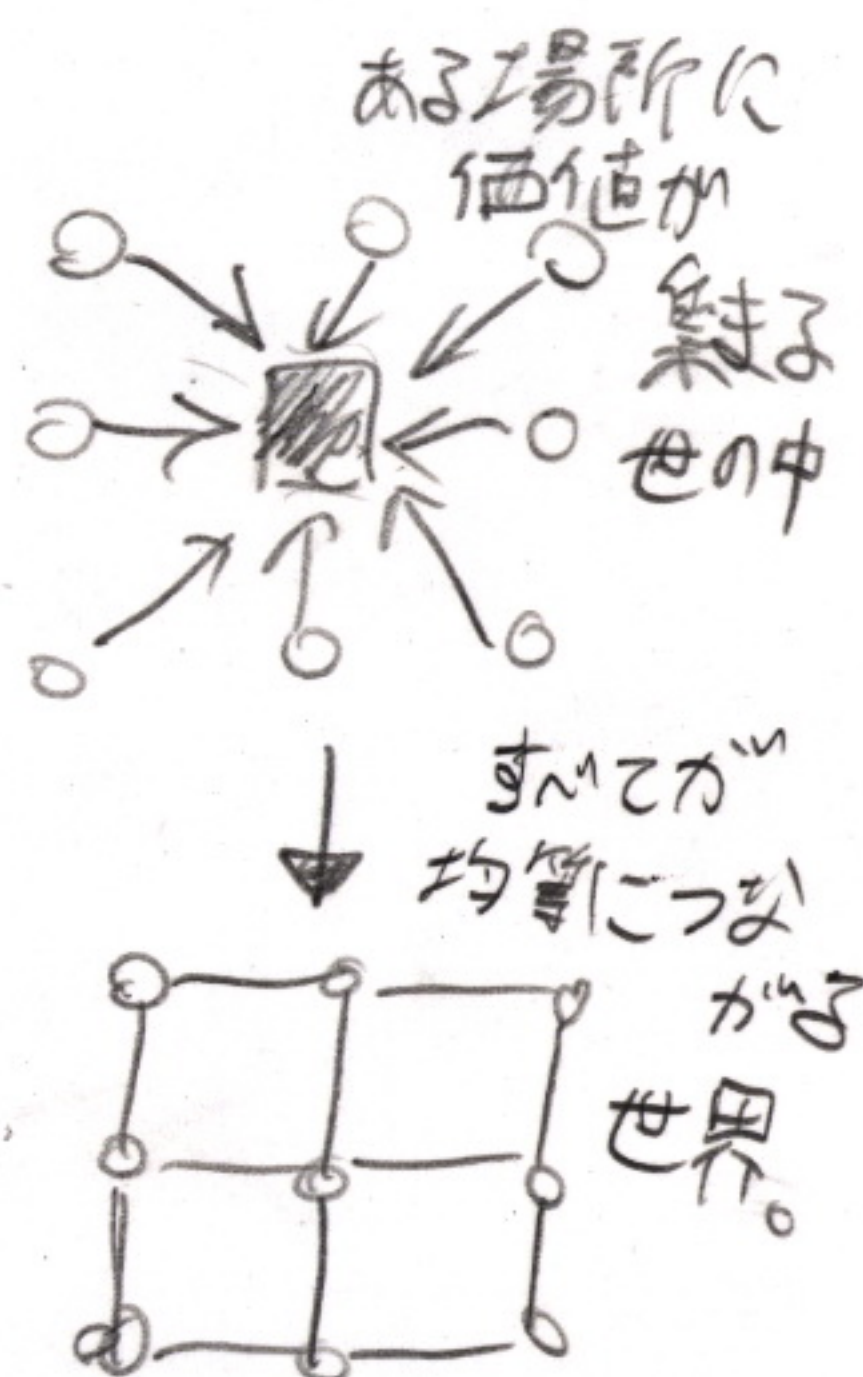 ある場所に
価値が
集まる
世の中
すべてが
均質につな
がる
世界。